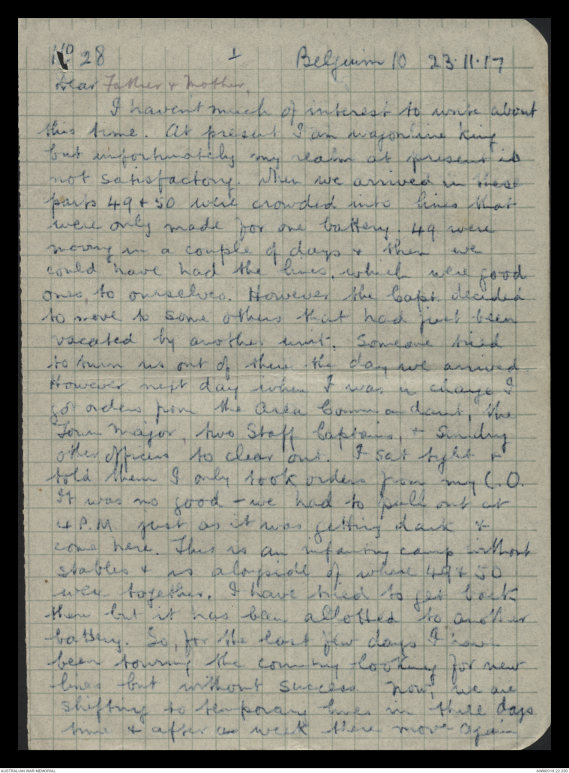 No 28 1 Belguim 10 23.11.17
Dear Father & Mother,
I havent much of interest to write about
this time. At present I am wagonline King
but unfortunately my realm at present is
not satisfactory. When we arrived in these
parts 49 & 50 were crowded into lines that
were only made for one battery. 49 were
moving in a couple of days & then we
could have had the lines, which were good
ones, to ourselves. However the Capt. decided
to move to some others that had just been
vacated by another unit. Someone tried
to turn us out of there the day we arrived.
However next day when I was in charge I
got orders from the Area Commandant, the
Town Major, two Staff Captains, & Sundry
other officers to clear out. I sat tight &
told them I only took orders from my C.O.
It was no good – we had to pull out at
4 P.M. just as it was getting dark &
come here. This is an infantry camp without
stables & is alongside of where 49 & 50
were together. I have tried to get back
there but it has been allotted to another
battery. So, for the last few days I have
been touring the country looking for new
lines but without success. Now, we are
shifting to temporary lines in three days
time & after a week there move again
AUSTRALIAN WAR MEMORIAL